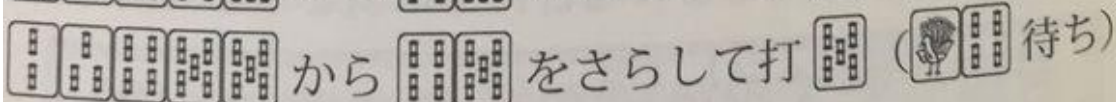 から をさらして打 ( 待ち)